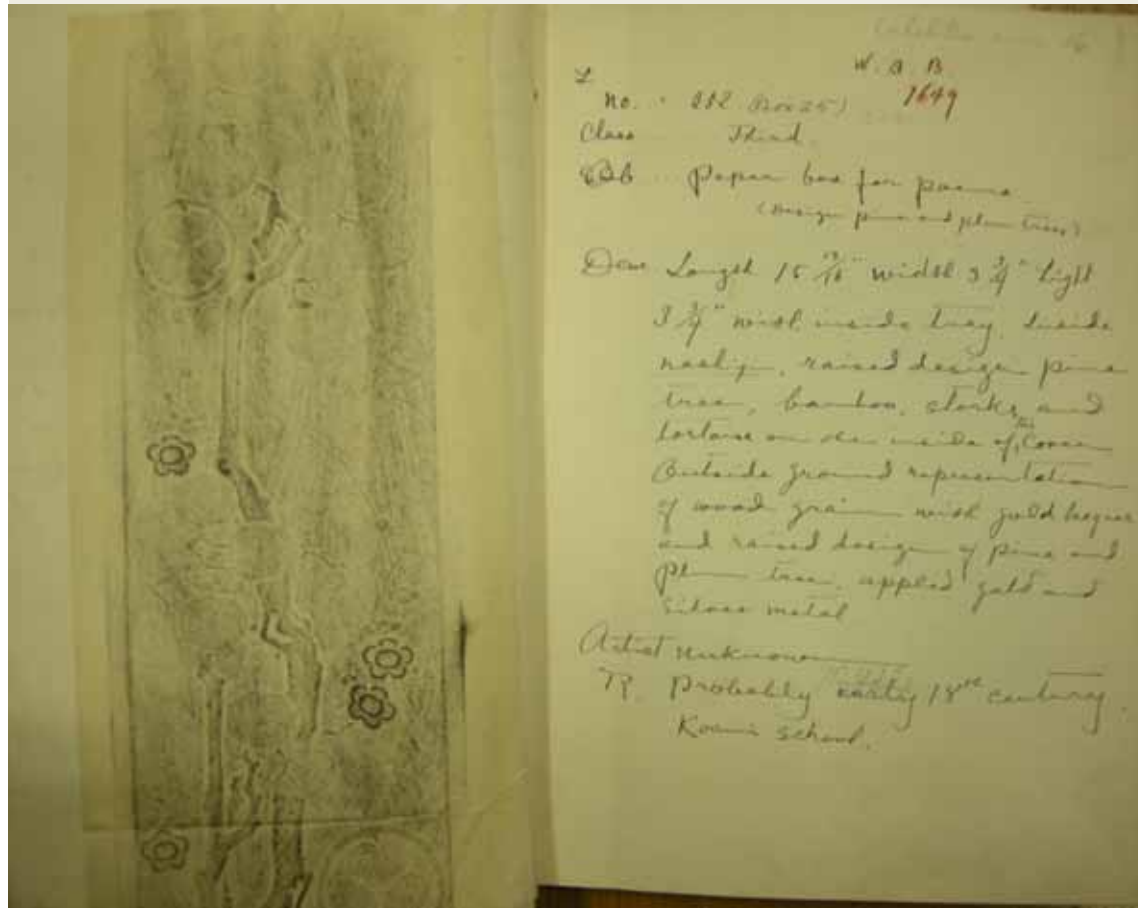 W. a. B
1649
No. - 
Class Third.
Obb Paper box for poems
(Design pine and plum trees)
Des Length 15 width 3 3/4" hight
3 3/4" with inside tray. Inside
nashiji, raised design pine
tree, bamboo, storks, and
tortoise on the inside of the cover
Outside ground representation
of wood grain with gold lacquer
and raised design of pine and
plum tree. applied gold and
silver metal
Artist unknown
R. Probably early 18th century.
Koami school.